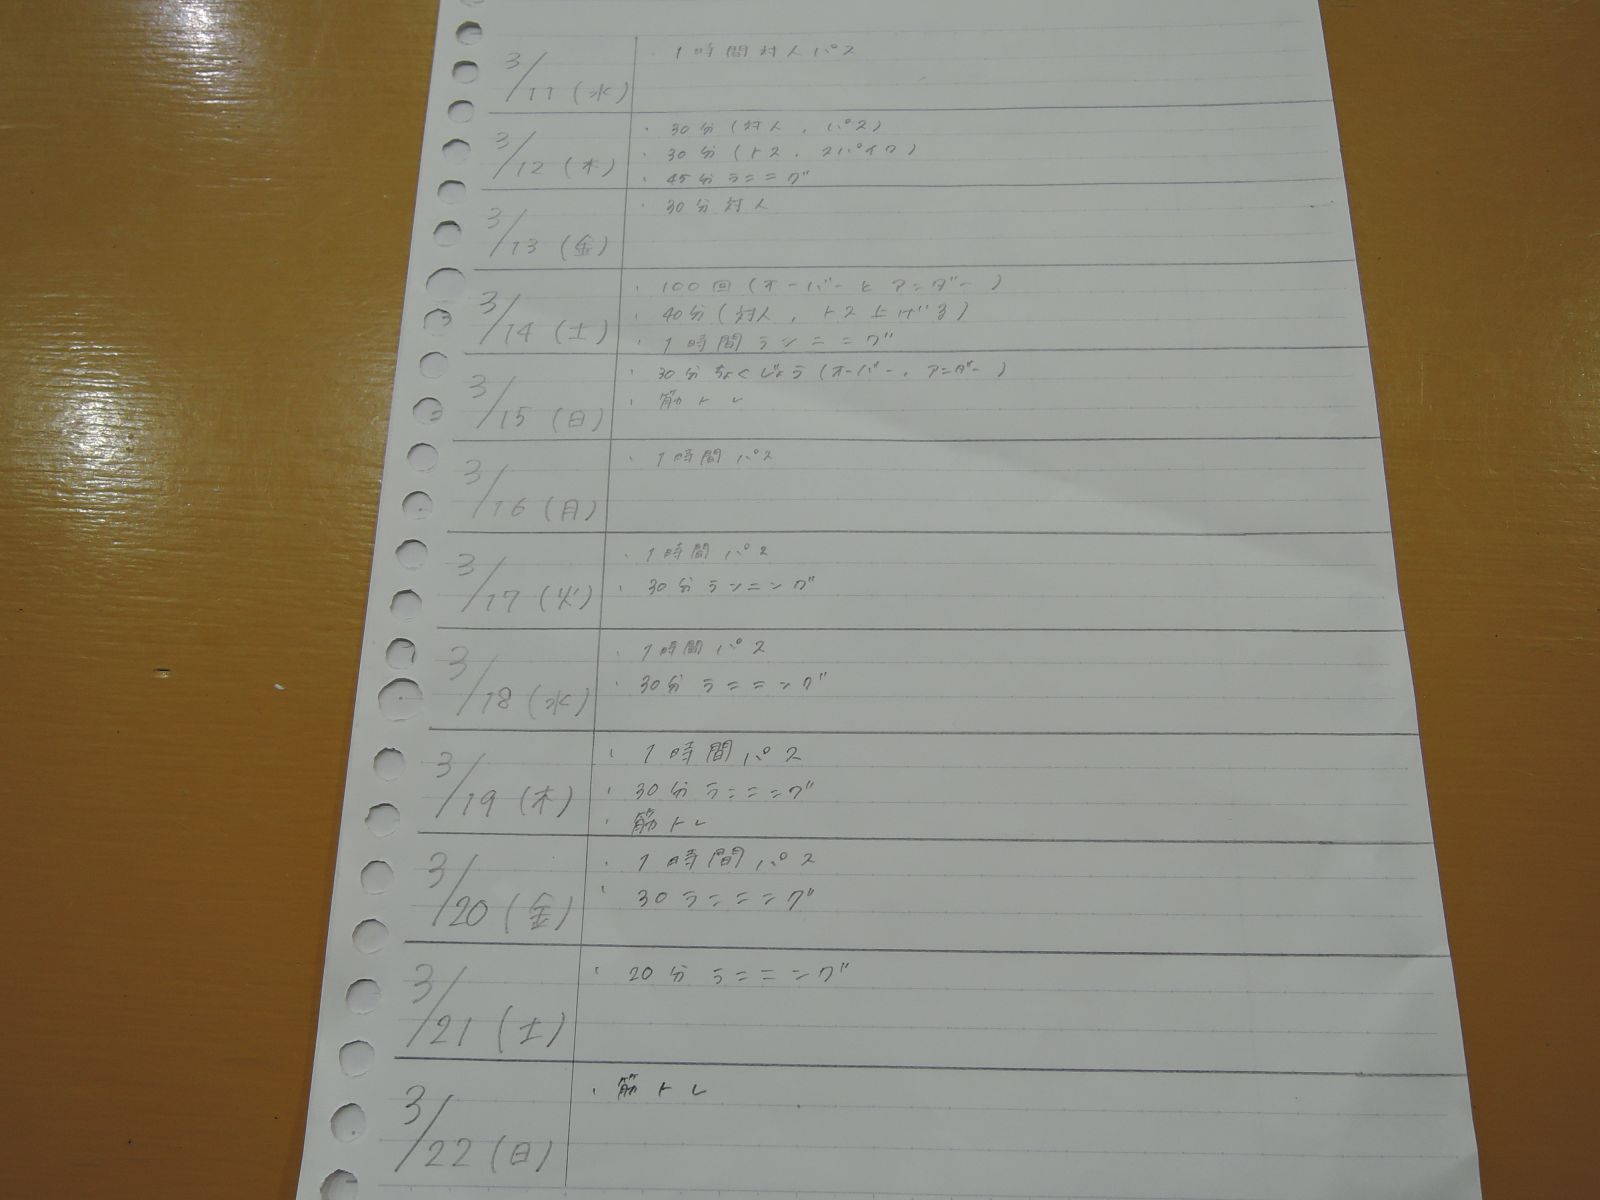 3/11(水)
・1時間対人パス
3/12(木)
・30分(対人、パス)
・30分(トス、スパイク)
・45分ランニング
3/13(金)
・30分対人
3/14(土)
・100回(オーバーとアンダー)
・40分(対人、トス上げる)
・1時間ランニング
3/15(日)
・30分ちょくじょう(オーバー、アンダー)
・筋トレ
3/16(月)
・1時間パス
3/17(火)
・1時間パス
・30分ランニング
3/18(水)
・1時間パス
・30分ランニング
3/19(木)
・1時間パス
・30分ランニング
・筋トレ
3/20(金)
・1時間パス
・30ランニング
3/21(土)
・20分ランニング
3/22(日)
・筋トレ